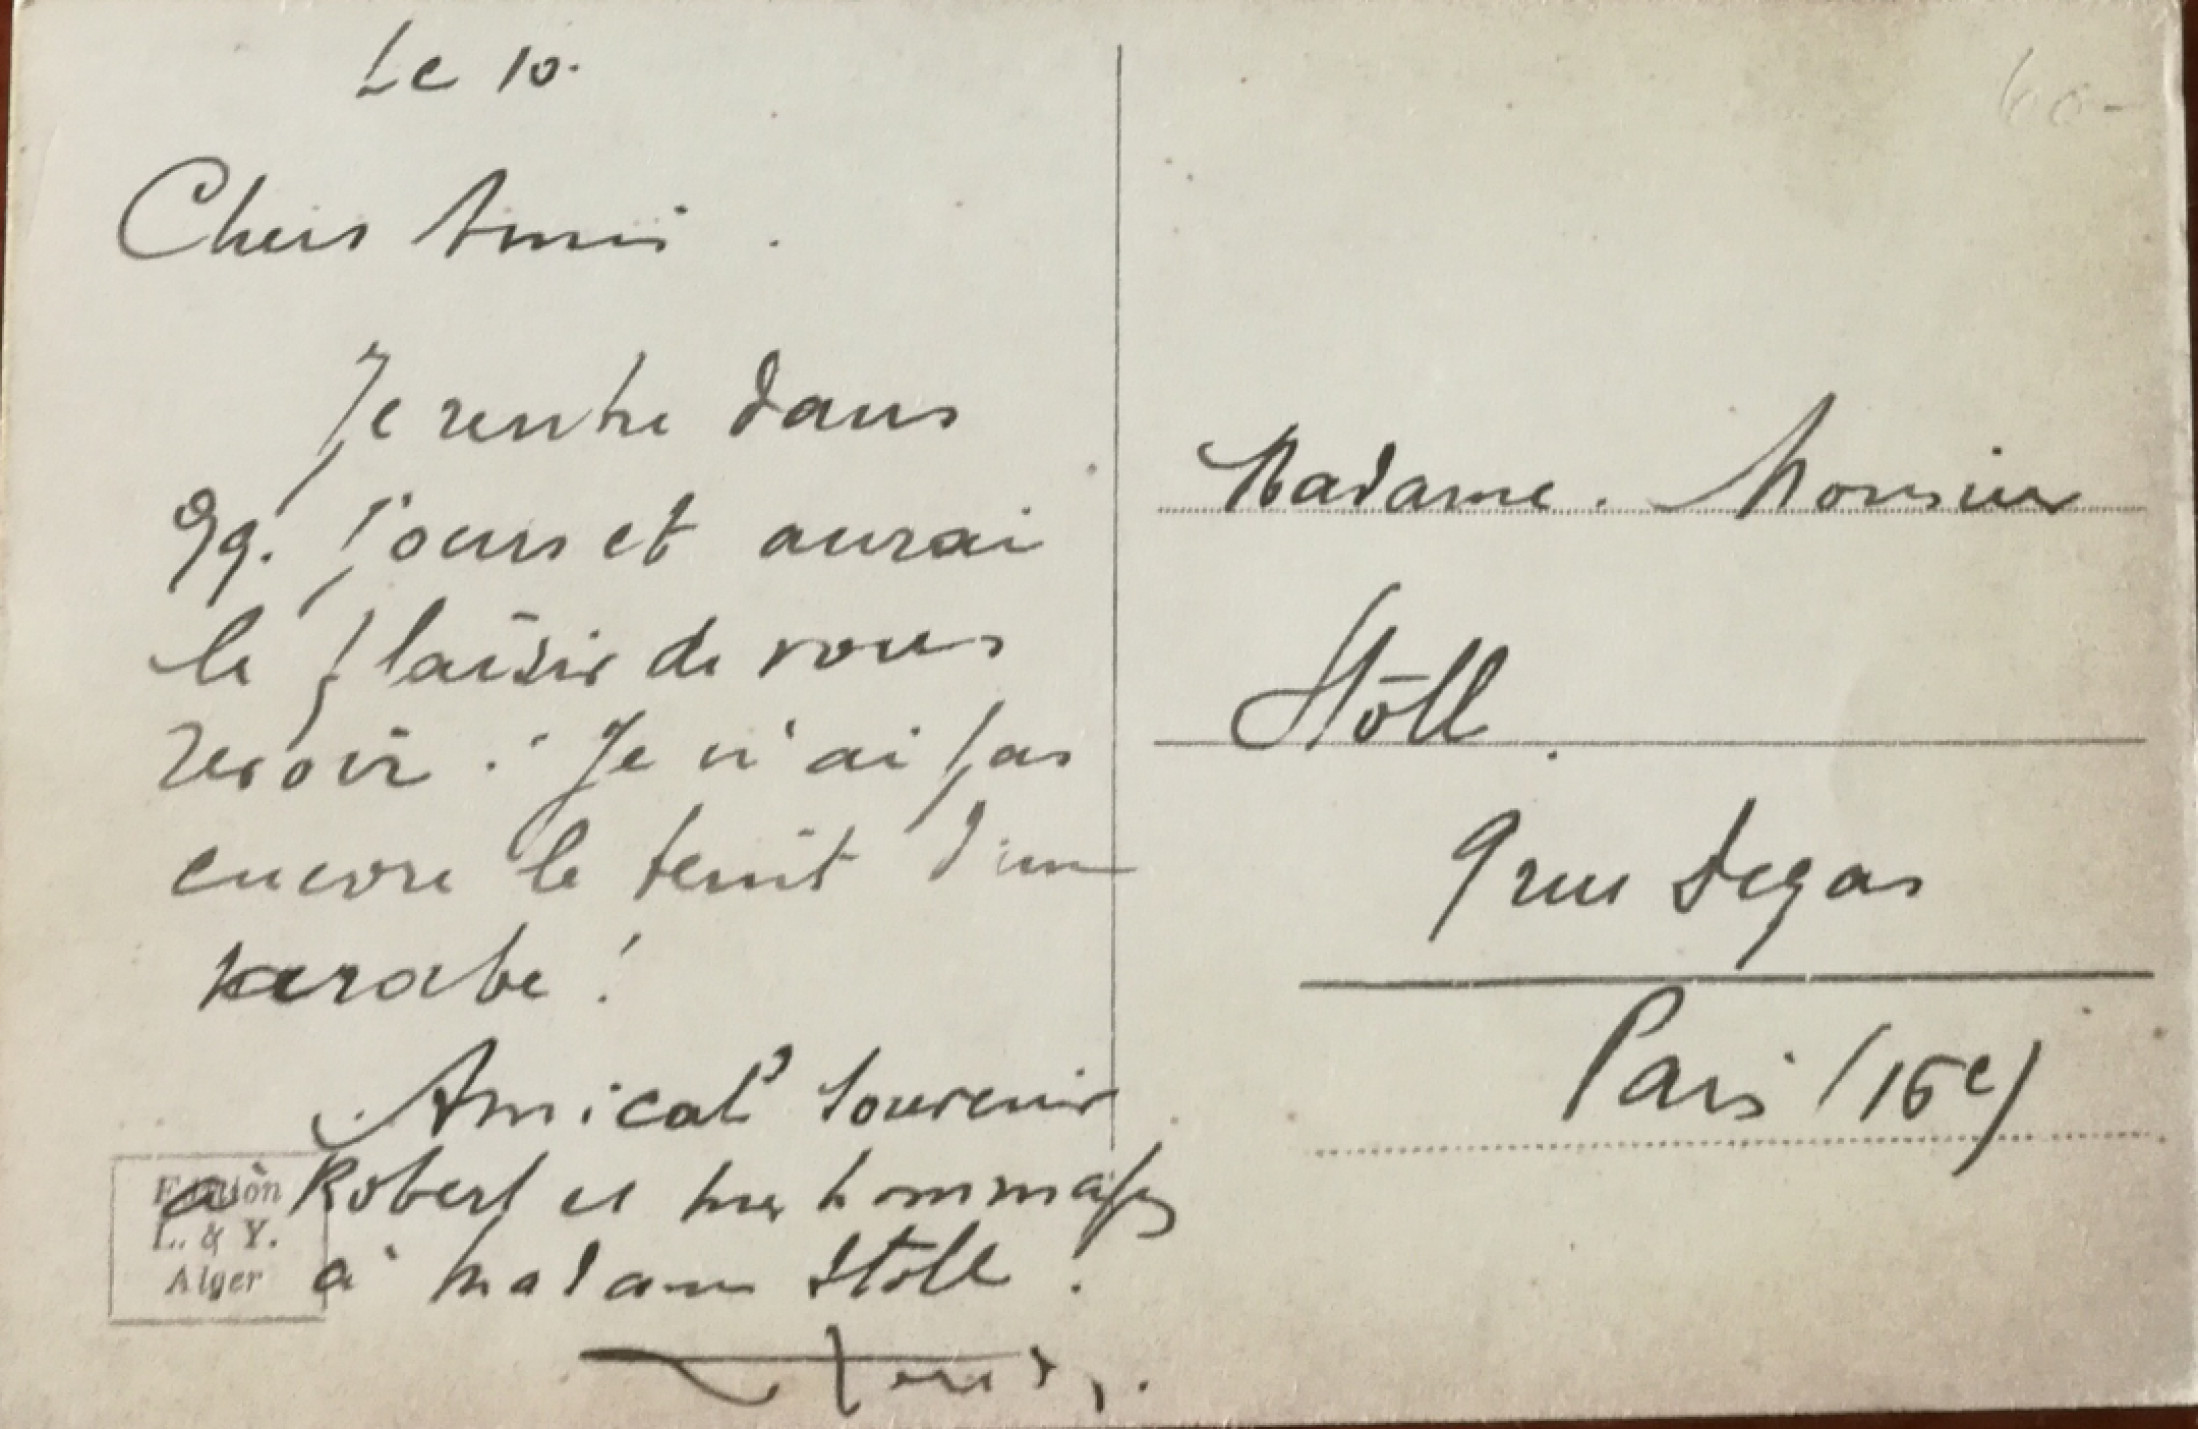 Le 10.
Chers Amis.
Je rentre dans
qq. jours et aurai
le plaisir de vous
revoir. Je n'ai pas
encore le teint d'un
arabe!
Amical souvenir
à Robert et mes hommages
à Madame Stoll!
Edition
L. & Y.
Alger
60-
Madame. Monsieur
Stoll.
9 rue Degas
Paris (16e)